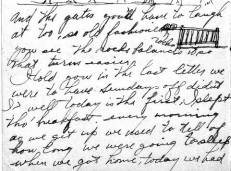 and the gates you'll have to laugh
at too, so old fashioned
you see the rocks balance it so
that turns easier.
I told you in the last letter we
were to have Sundays off didn't
I, well today is the first. I slept
tho' breakfast. every morning
as we get up we used to tell of
how long we were going to sleep
when we got home, today we had